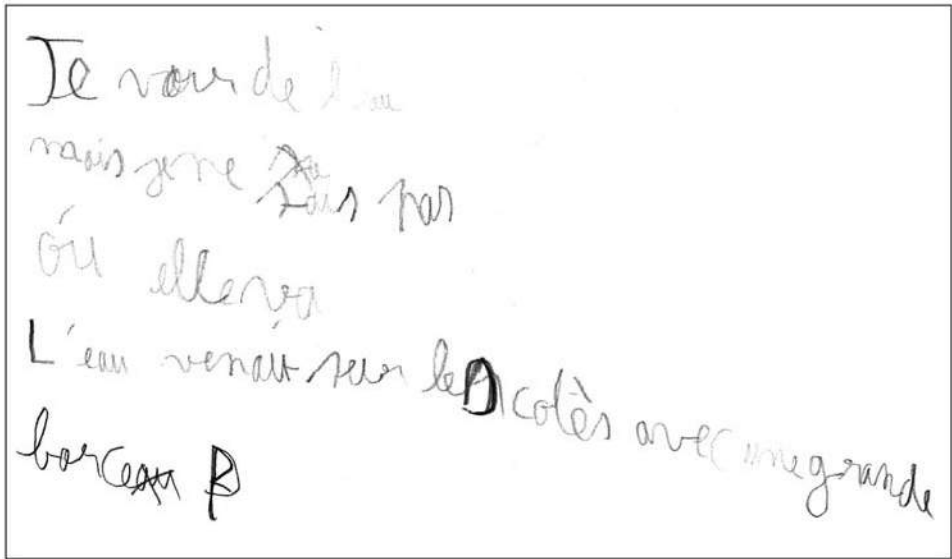 Je vour de l'eau
mais je ne sais pas
où elle va
L'eau venait sur les cotès avec une grande